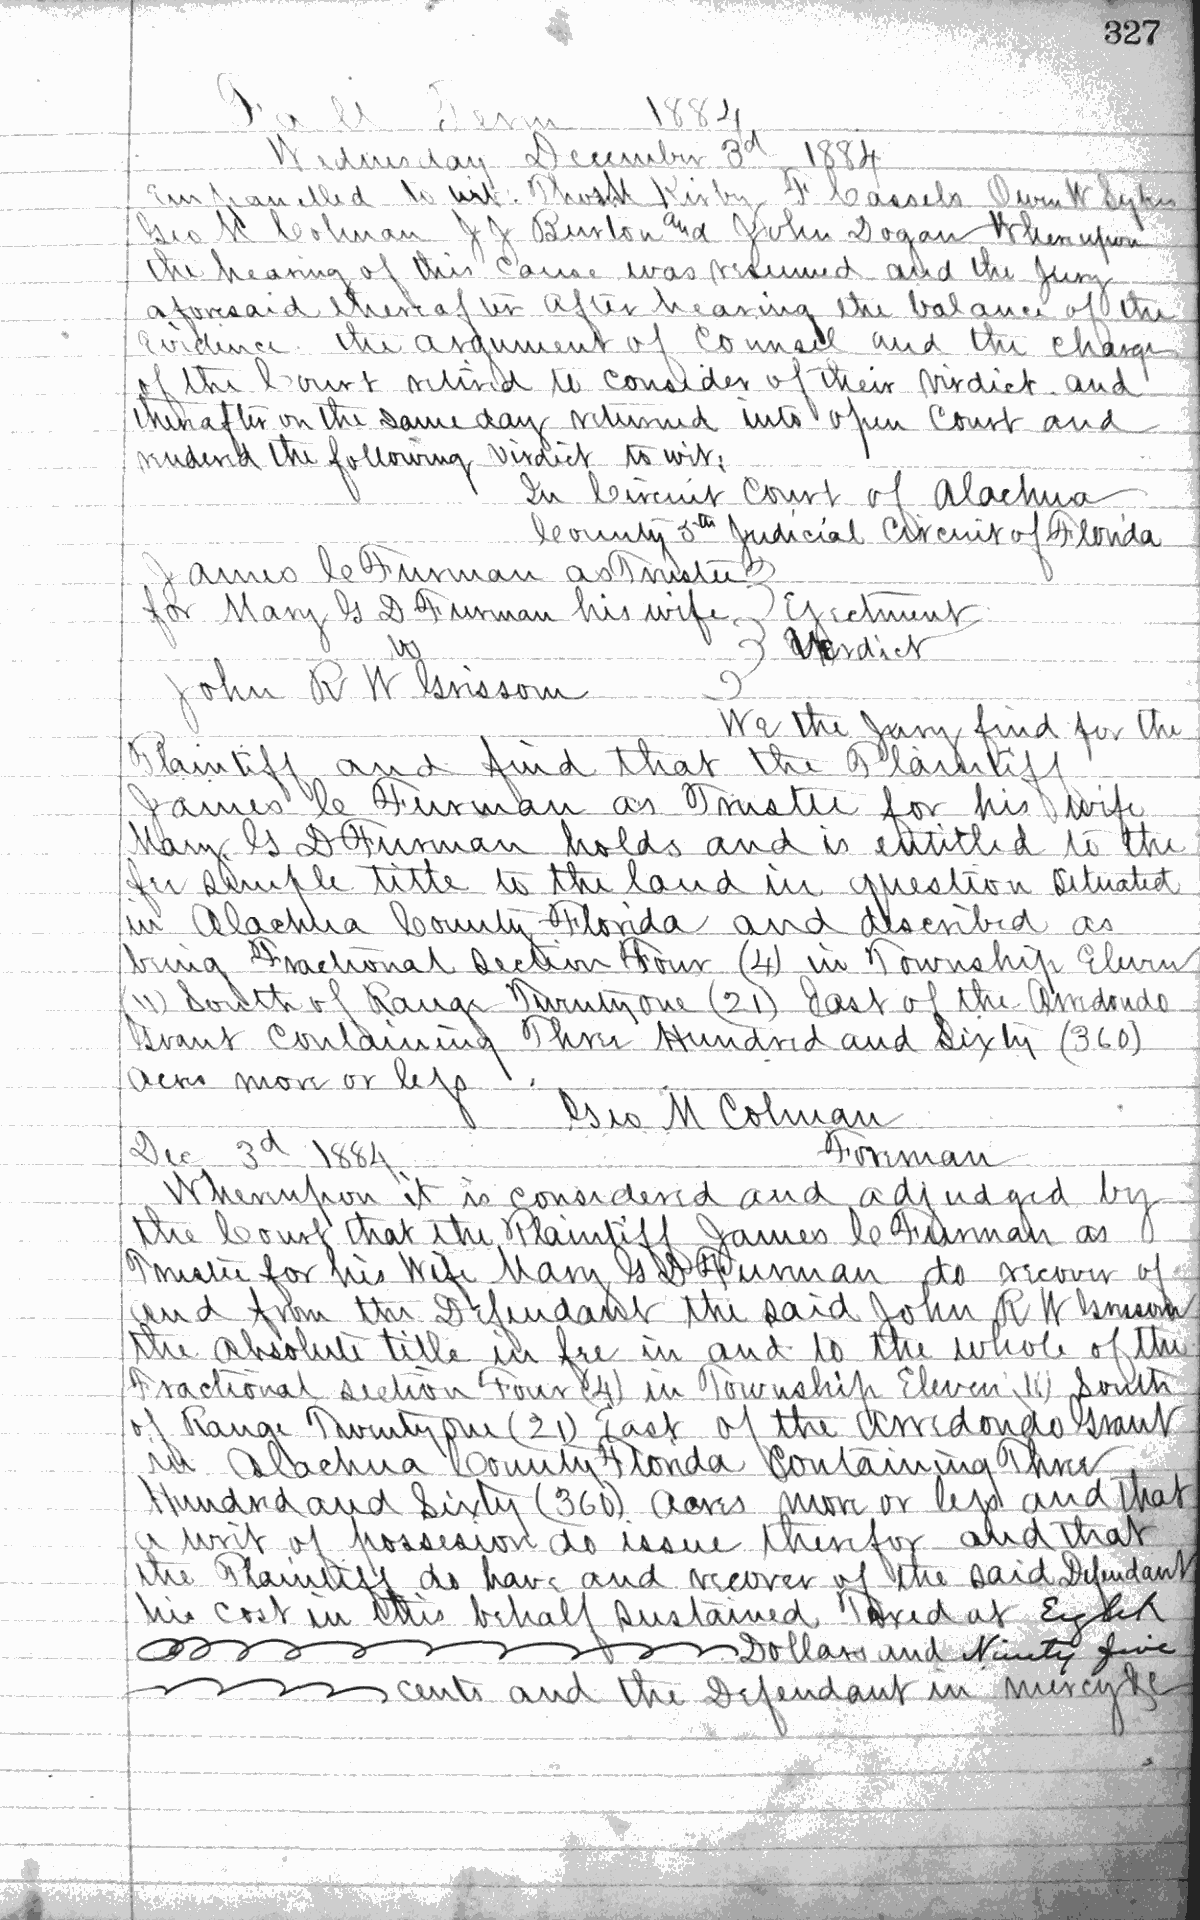 327
Fall Term 1884
Wednesday December 3d 1884
Empanelled to wit: Thos Kirby F Cassels Owen W Sykes
Geo M Colman J J Burton and John Dogan Whereupon
the hearing of this cause was resumed and the Jury
aforesaid thereafter after hearing the balance of the
Evidence the argument of Counsel and the charge
of the Court retired to consider of their Virdict and
thereafter on the same day returned into open Court and
rendered the following Virdict to wit:
In Circuit Court of Alachua
County 5th Judicial Circuit of Florida
James C Furman as Trustee
for Mary G D Furman his wife Ejectment
vs Verdict
John R W Grissom
We the Jury find for the
Plaintiff and find that the Plaintiff
James C Furman as Trustee for his wife
Mary G D Furman holds and is entitled to the
fee simple title to the land in question situated
in Alachua County Florida and described as
being Fractional Section Four (4) in Township Eleven
(11) South of Range Twenty one (21) East of the Arredondo
Grant Containing Three Hundred and Sixty (360)
acres more or less.
Geo M Colman
Dec 3d 1884 Foreman
Whereupon it is considered and adjudged by
the Court that the Plaintiff James C Furman as
Trustee for his Wife Mary G D Furman do recover of
and from the Defendant the said John R W Grissom
the absolute title in fee in and to the whole of the
Fractional section Four (4) in Township Eleven (11) South
of Range Twenty one (21) East of the Arredondo Grant
in Alachua County Florida Containing Three
Hundred and Sixty (360) acres more or less and that
a writ of possesion do issue therefor and that
the Plaintiff do have and recover of the said Defendant
his cost in this behalf sustained Taxed at
Dollars and Ninety five
cents and the Defendant in mercy &c